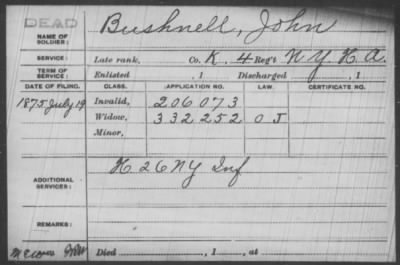 DEAD
Bushnell, John
NAME OF SOLDIER:
SERVICE: Late rank, Co. K, 4 Reg't N.Y. H.A.
TERM OF SERVICE: Enlisted , 1 Discharged , 1
DATE OF FILING. CLASS. APPLICATION NO. LAW. CERTIFICATE NO.
1875 July 19 Invalid, 206073
Widow, 332252 O J
Minor,
ADDITIONAL SERVICES: H 26 NY Inf
REMARKS:
Died , 1 , at